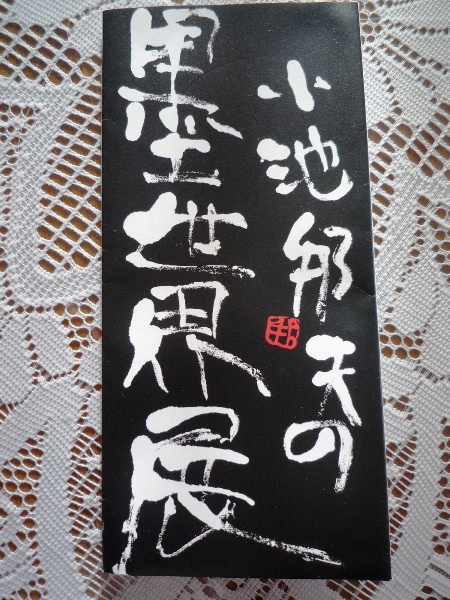 小池邦夫の
墨世界展